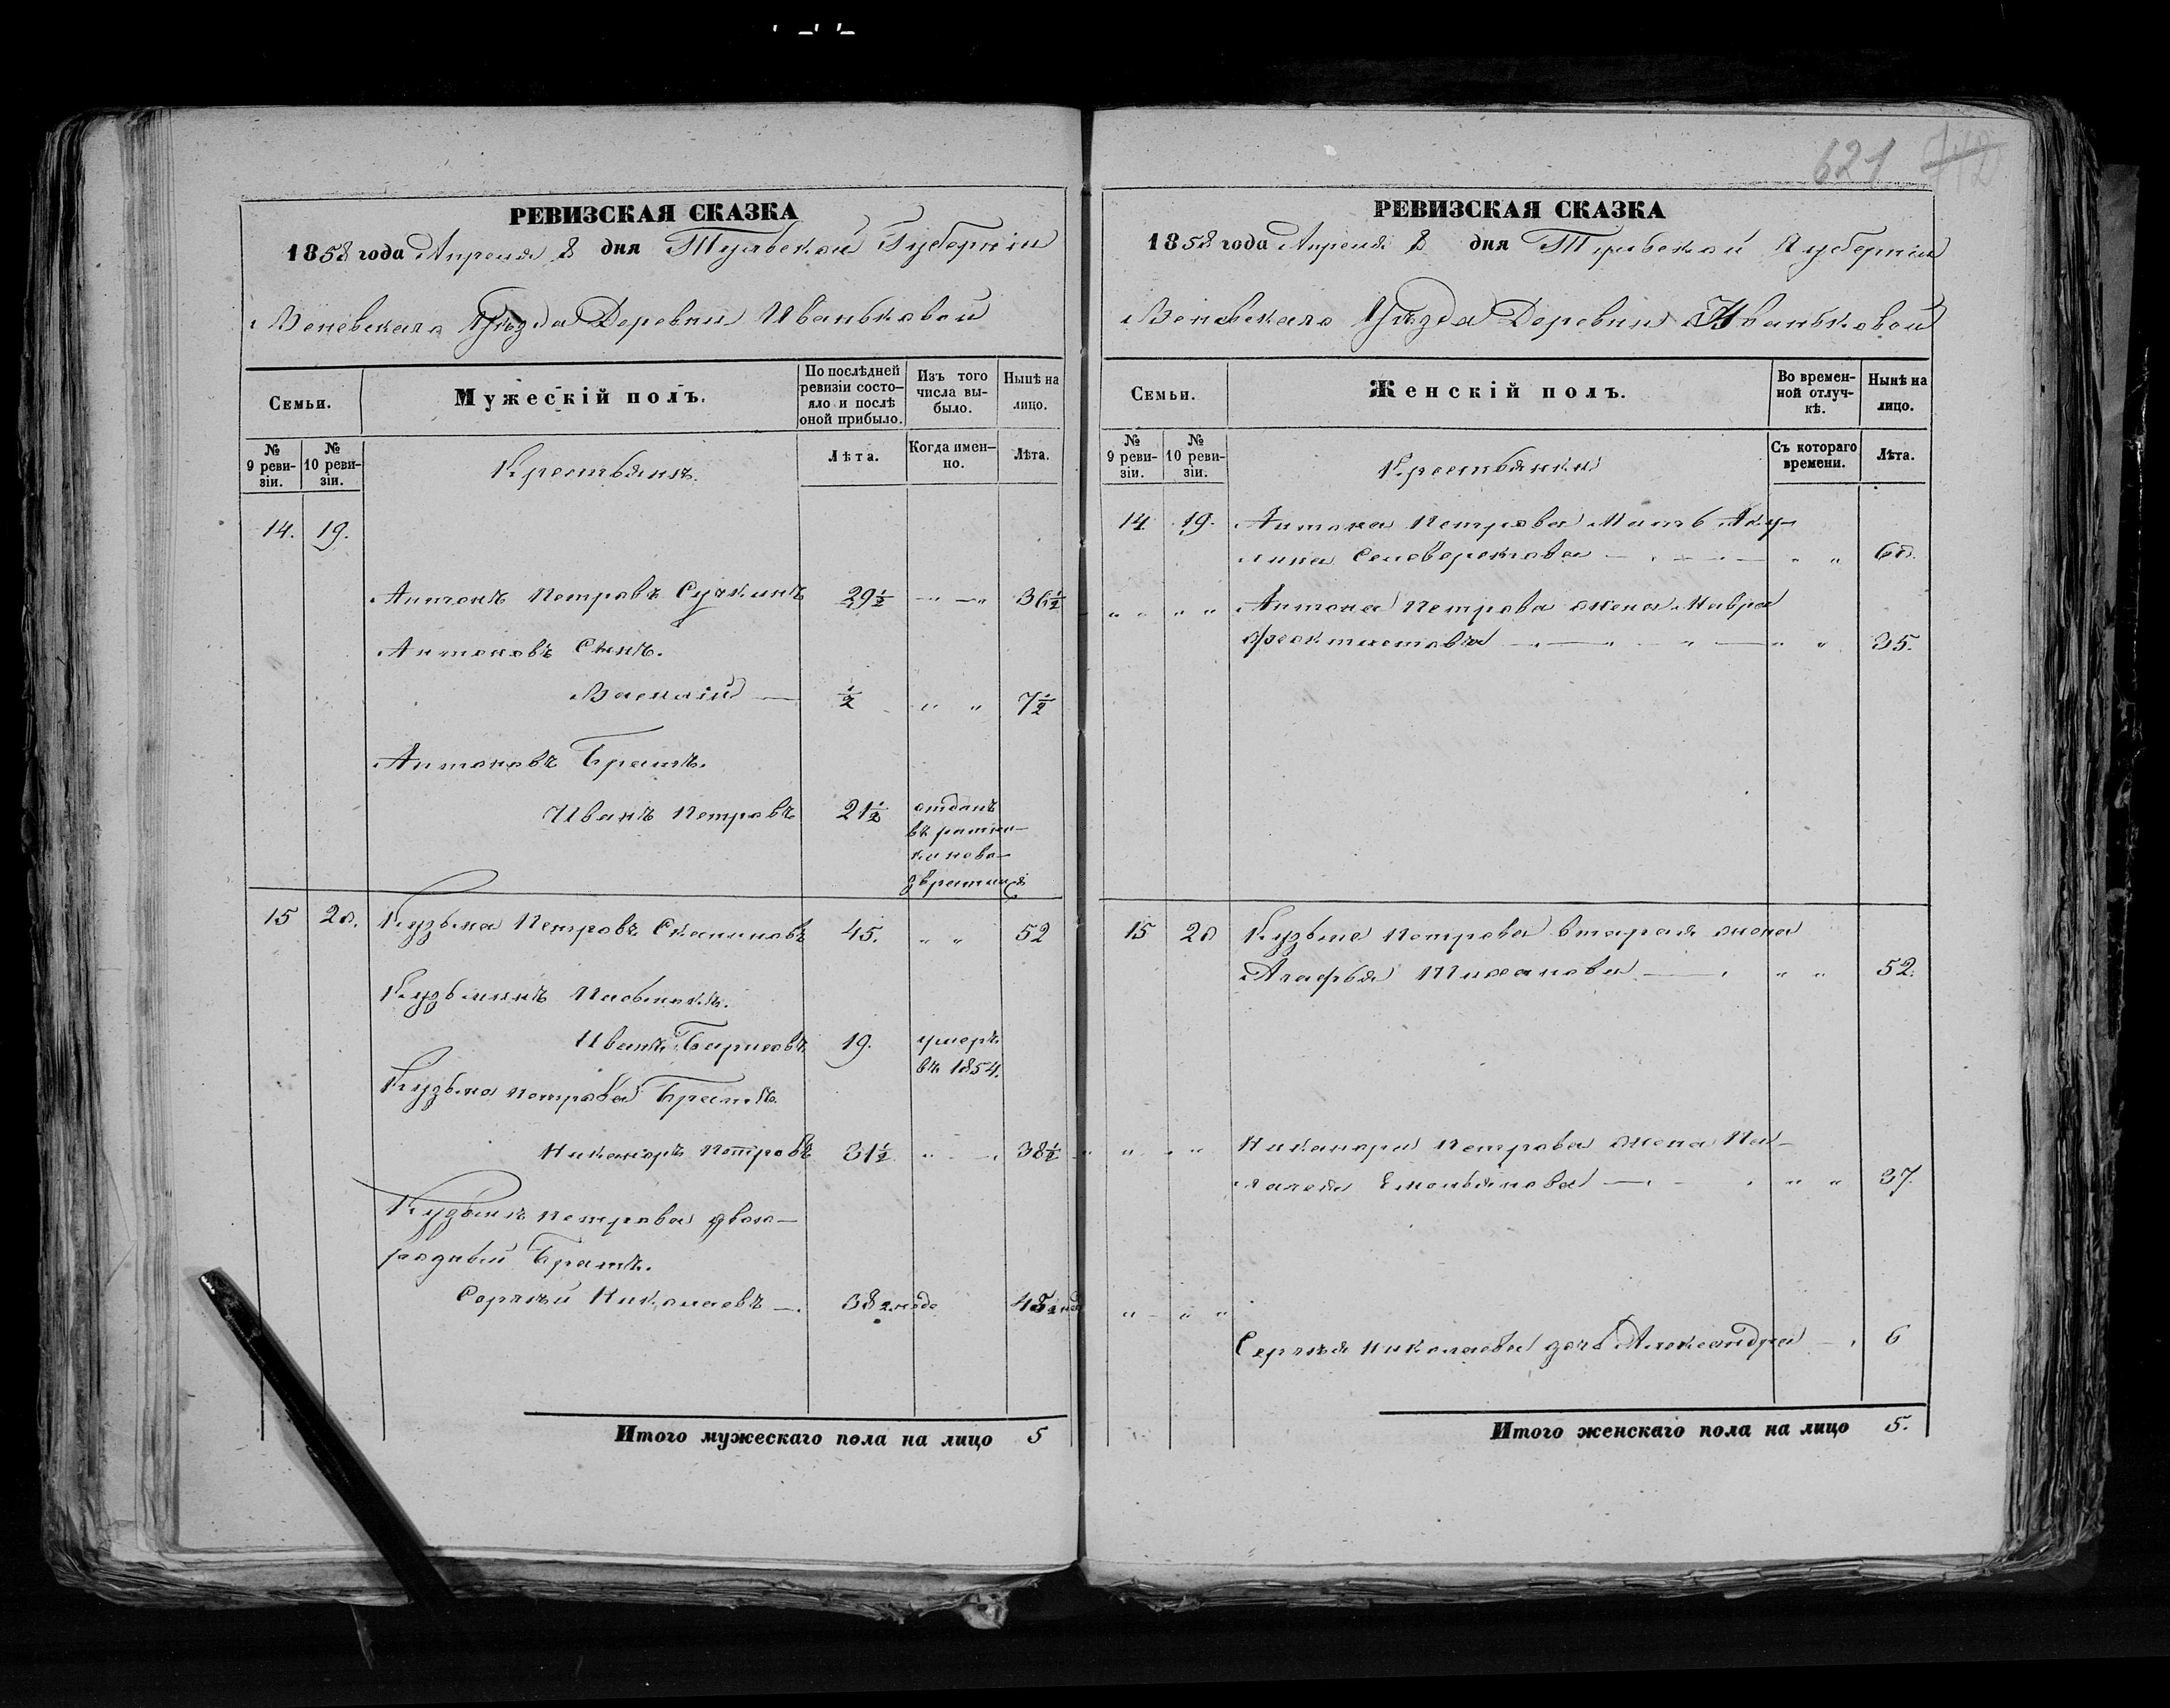 621 712
РЕВИЗСКАЯ СКАЗКА
1858 года Апреля 8 дня Тульской Губернiи
Веневскаго Уѣзда Деревни Иваньковой
Семьи.
Мужескiй полъ.
По послѣдней ревизiи состо-
яло и послѣ
оной прибыло.
Изъ того
числа вы-
было.
Нынѣ на
лицо.
№
9 реви-
зiи.
№
10 реви-
зiи.
Крестьянъ
Лѣта.
Когда имен-
но.
Лѣта.
14. 19.
Антонъ Петровъ Сучкинъ 29½ " " 36½
Антоновъ Сынъ.
Василiй ½ " " 7½
Антоновъ Братъ.
Иванъ Петровъ 21½ отданъ
въ ратни-
ки нево-
звратился
15 20. Кузьма Петровъ 45. " " 52
Кузьминъ
Иванъ Борисовъ 19. умеръ
въ 1854.
Кузьма Петрова Братъ.
Никаноръ Петровъ 31½ " " 38½
Кузьмы Петрова двою-
родный Братъ.
Сергѣй Николаевъ
Итого мужескаго пола на лицо 5
РЕВИЗСКАЯ СКАЗКА
1858 года Апреля 8 дня Тульской Губернiи
Веневскаго Уѣзда Деревни Иваньковой
Семьи.
Женскiй полъ.
Во времен-
ной отлуч-
кѣ.
Нынѣ на
лицо.
№
9 реви-
зiи.
№
10 реви-
зiи.
Крестьянки
Съ котораго
времени.
Лѣта.
14. 19. Антона Петрова Мать Аку-
лина Селиверстова " " 60.
" " " " Антона Петрова жена Мавра
Феоктистова " " 35.
15 20 Кузьмы Петрова вторая жена
Агафья Тиханова " " 52.
" " " Никанора Петрова жена Пе-
лагея Емельянова " " 37.
" " "
Сергѣя Николаева дочь Александра 6
Итого женскаго пола на лицо 5.